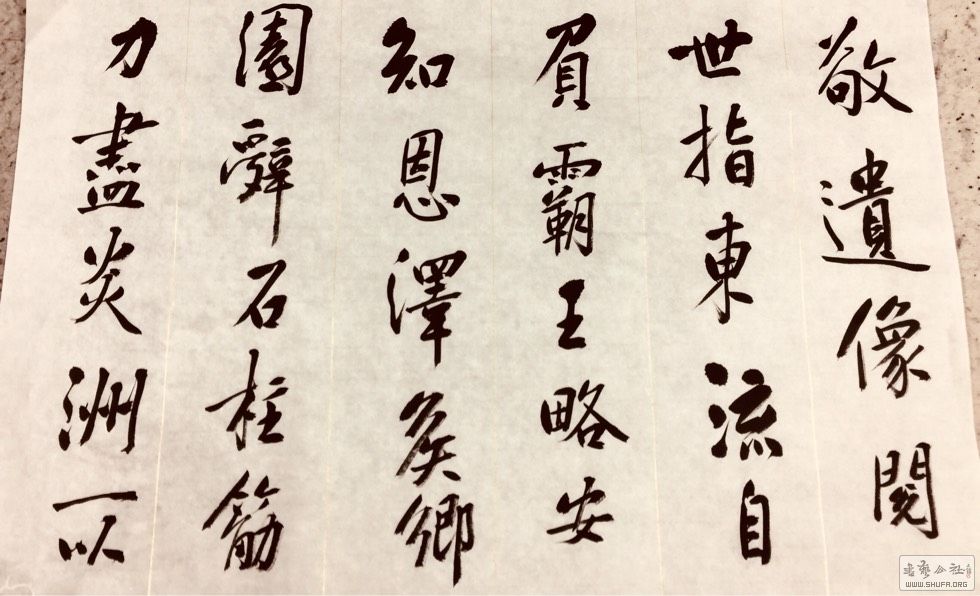 敬遺像閱
世指東流自
負霸王略安
知恩澤侯鄉
園辭石柱筋
力盡炎洲一以
書藝公社
WWW.SHUFA.ORG